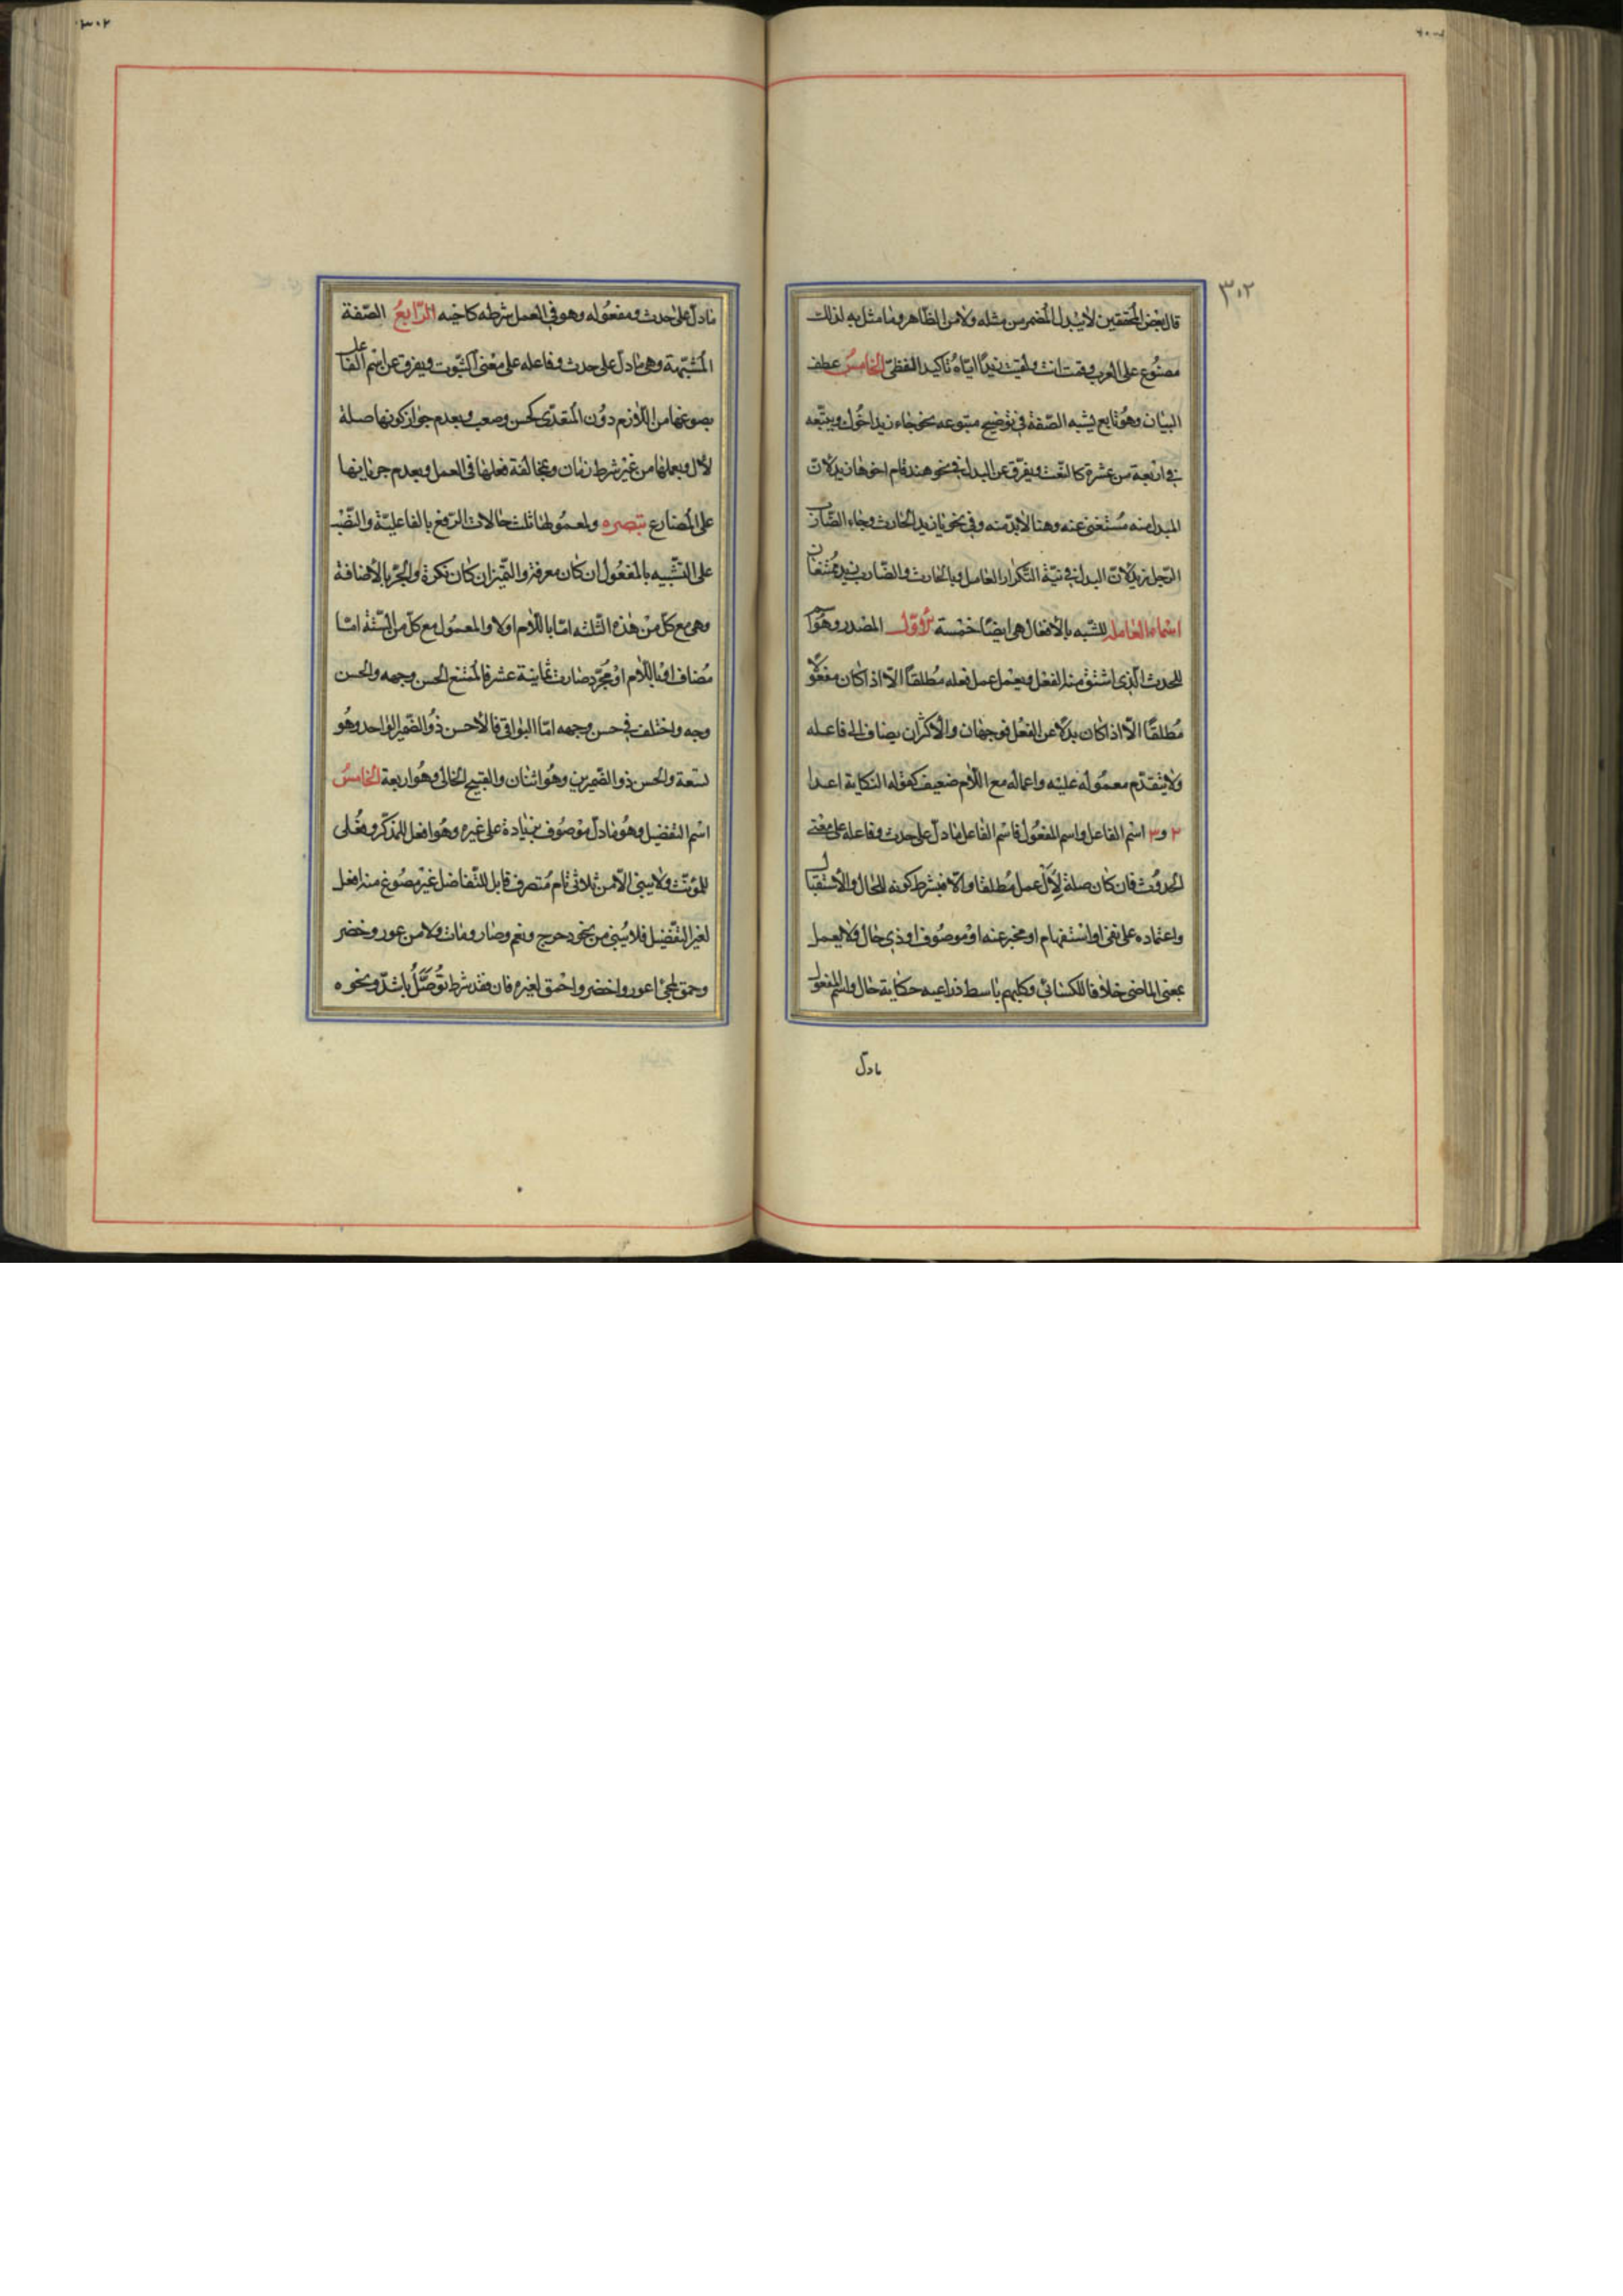 ٣٠٢
قال بعض المحققين لا يبدل المضمر من مثله ولا من الظاهر وما مثل به لذلك
مصنوع على العرب وقمت انت ولقيت زيدًا ايّاه تاكيد لفظىّ الخامس عطف
البيان وهو تابع يشبه الصّفة فى توضيح متبوعه نحو جاء زيد اخوك ويتبعه
فى اربعة من عشرة كالنّعت ويفرّق عن البدل فى نحو هند قام اخوها زيد لانّ
المبدل منه مستغنى عنه وهنا لابدّ منه وفى نحو يا زيد الحارث وجاء الضّارب
الرّجل زيد لانّ البدل فى نيّة التّكرار العامل ويا الحارث والضّارب زيد ممتنعان
اسماء العاملة للشّبه بالافعال هى ايضًا خمسة الاوّل المصدر وهو اسم
للحدث الّذى اشتقّ منه الفعل ويعمل عمل فعله مطلقًا الّا اذا كان مفعولًا
مطلقًا الّا اذا كان بدلًا عن الفعل فوجهان والاكثر ان يضاف الى فاعله
ولا يتقدّم معموله عليه واعماله مع اللّام ضعيف كقوله النكاية اعداه
٢ و٣ اسم الفاعل واسم المفعول فاسم الفاعل ما دلّ على حدث وفاعله على معنى
الحدوث فان كان صلة لال عمل مطلقا والّا فبشرط كونه للحال والاستقبال
واعتماده على نفى او استفهام او مخبر عنه او موصوف او ذى حال ولا يعمل
بمعنى الماضى خلافا للكسائى وكلبهم باسط ذراعيه حكاية حال واسم المفعول
مادلّ
٣٠٢
ما دلّ على حدث ومفعوله وهو فى العمل شرطه كاخيه الرّابع الصّفة
المشبّهة وهى ما دلّ على حدث وفاعله على معنى الثّبوت ويفرق عن اسم الفاعل
بصوغها من اللّازم دون المتعدّى كحسن وصعب وبعدم جواز كونها صلة
لال وبعملها من غير شرط زمان وبمخالفة فعلها فى العمل وبعدم جريانها
على المضارع تبصره ولمعمولها ثلث حالات الرّفع بالفاعليّة والنّصب
على التّشبيه بالمفعول ان كان معرفة والتّميز ان كان نكرة والجرّ بالاضافة
وهى مع كلّ من هذه الثّلثه امّا باللّام اولا والمعمول مع كلّ من السّتّة امّا
مضاف او باللّام او مجرّد صارت ثمانية عشر فالممتنع الحسن وجهه والحسن
وجه واختلف فى حسن وجهه امّا البواقى فالاحسن ذو الضّمير الواحد وهو
تسعة والحسن ذو الضّميرين وهو اثنان والقبيح الخالى وهو اربعة الخامس
اسم التفضيل وهو ما دلّ موصوف بزيادة على غيره وهو افعل للمذكّر وفعلى
للمؤنّث ولا يبنى الّا من ثلاثى تام متصرف قابل للتّفاضل غير مصوغ منه افعل
لغير التّفضيل فلا يبنى من نحو دحرج ونعم وصار ومات ولا من عور وخضر
وحمق لمجئ اعور واخضر واحمق لغيره فان فقد شرط توصّل باشدّ ونحوه